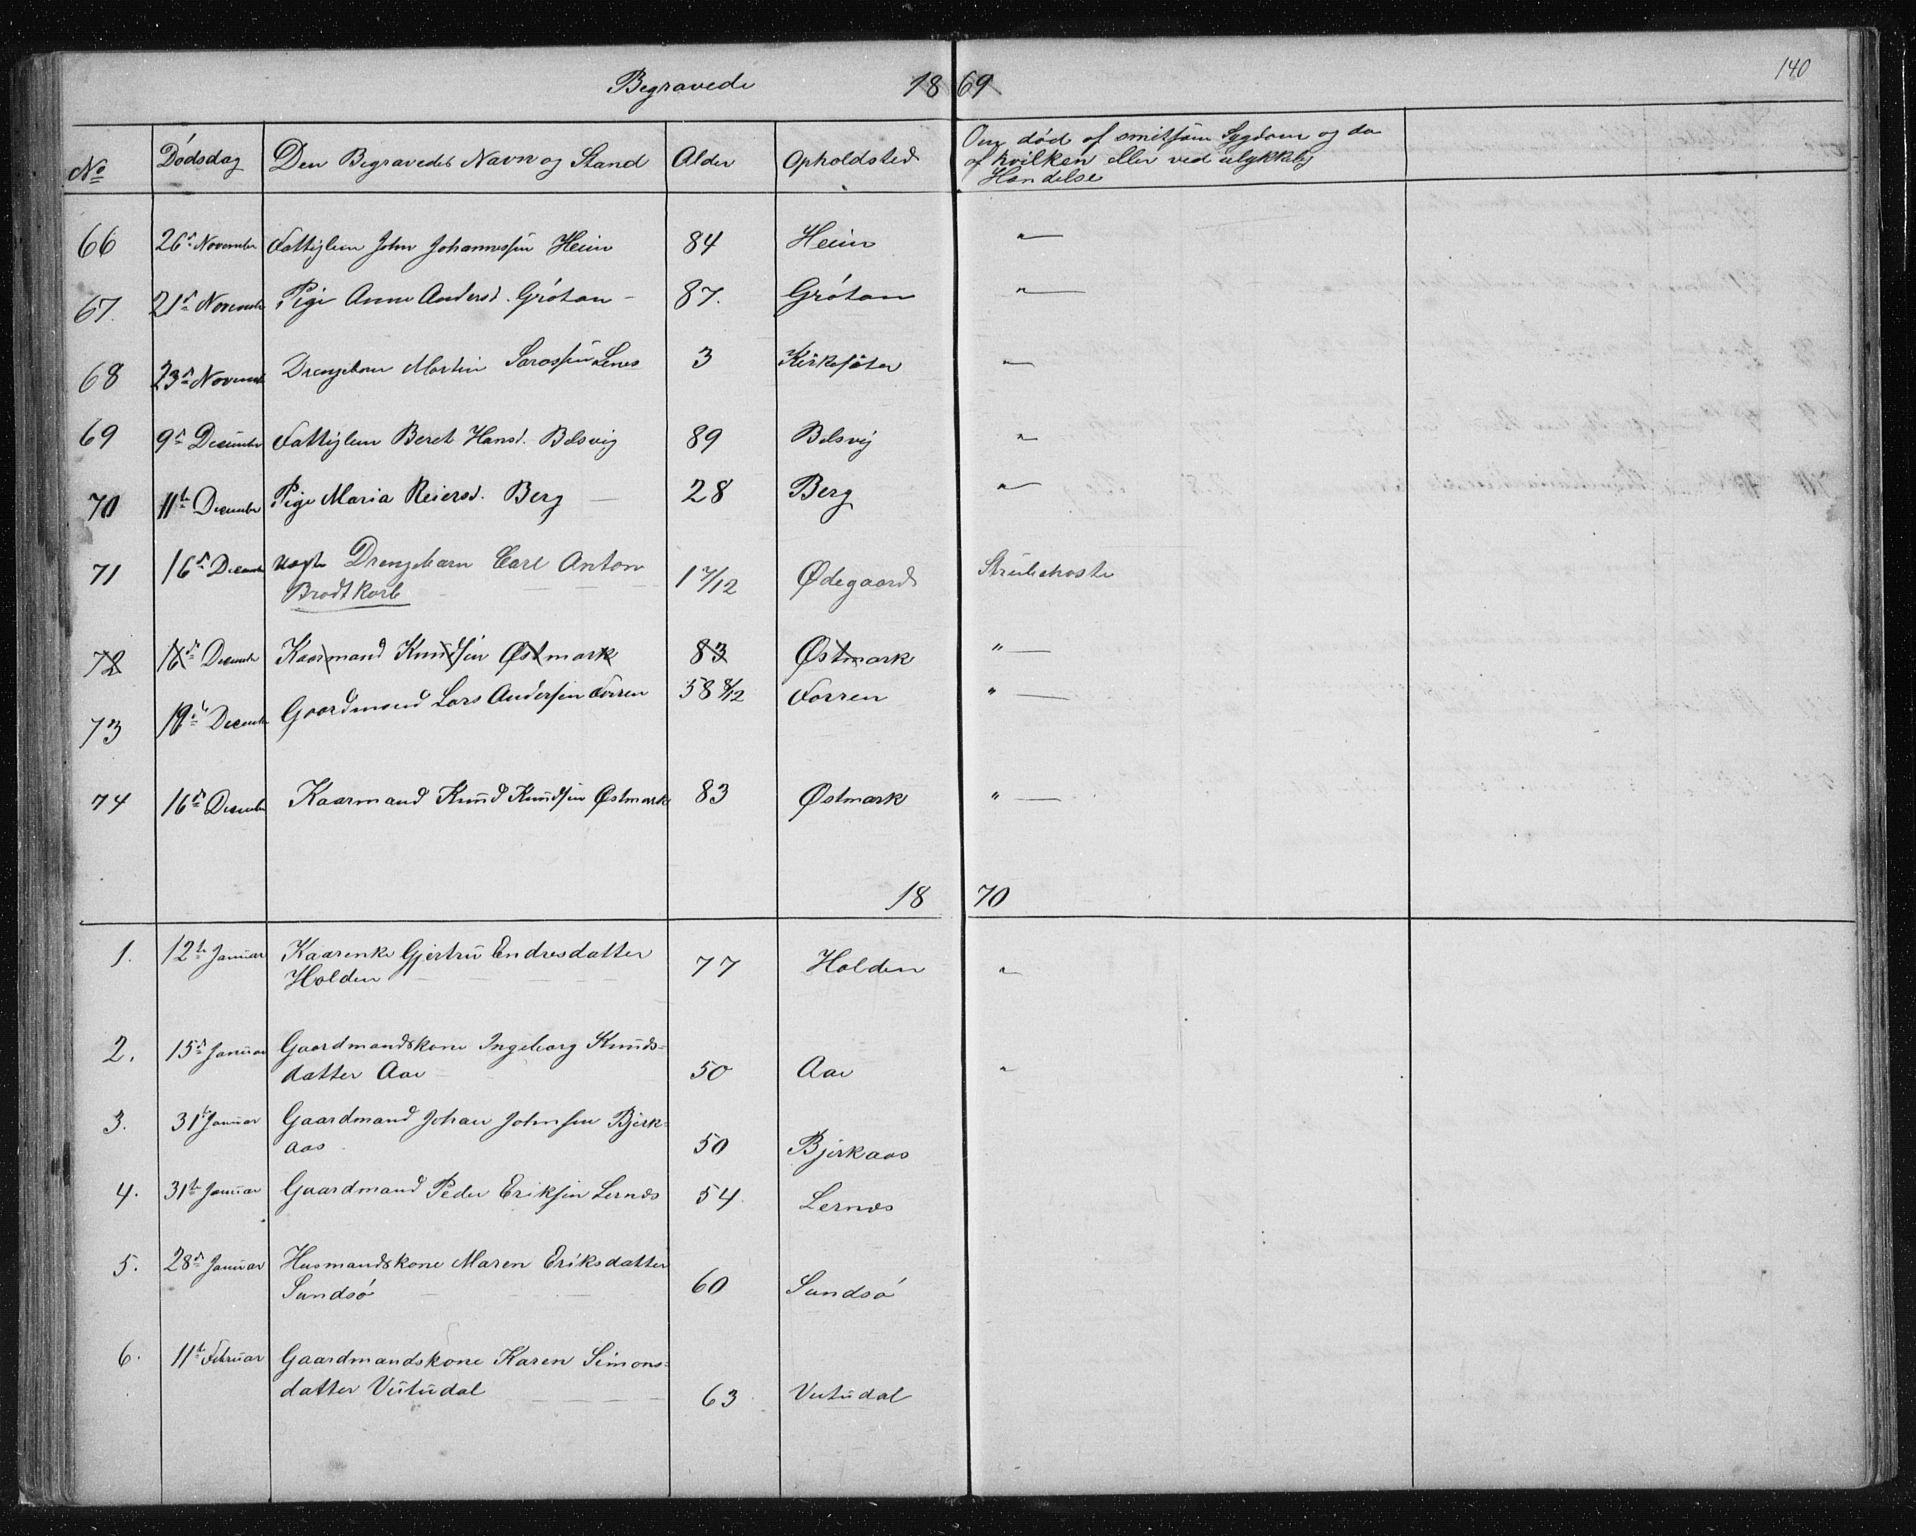 140
Begravede 1869
No Dødsdag Den Begravedes Navn og Stand Alder Opholdsted Om død af smitsom Sygdom og da
af hvilken eller ved ulykkelig
Hændelse
66 26de November Fattiglem John Johannessen Heim 84 Heim "
67. 21de November Pige Anne Andersd. Grótan 87. Grótan "
68 23de November Drengebarn Martin Larossen Lenes 3 Kirksæter "
69 9de December Fattiglem Beret Hansd. Belsvig 89 Belsvig "
70 11te December Pige Maria Reiersd. Berg 28 Berg "
71 16de December Drengebarn Carl Anton 1 7/12 Ødegaard Strubehoste
Brodtkorb
72 16de December Kaarmand Knudsen Østmark 83 Østmark "
73 19de December Gaardmand Lars Andersen Forren 58 8/12 Forren "
74 16de December Kaarmand Knud Knudsen Østmark 83 Østmark "
1870
1. 12te Januar Kaarenke Gjertru Endresdatter
Holden 77 Holden "
2. 15de Januar Gaardmandskone Ingeborg Knuds-
datter Aae 50 Aae "
3. 31te Januar Gaardmand Johan Johnsen Bjerk-
aas 50 Bjerkaas
4. 31te Januar Gaardmand Peder Eriksen Lernes 54 Lernes
5. 28de Januar Husmandskone Maren Eriksdatter
Sundsó 60 Sundsó
6. 11te Februar Gaardmandskone Karen Simons-
datter Vutudal 63 Vutudal